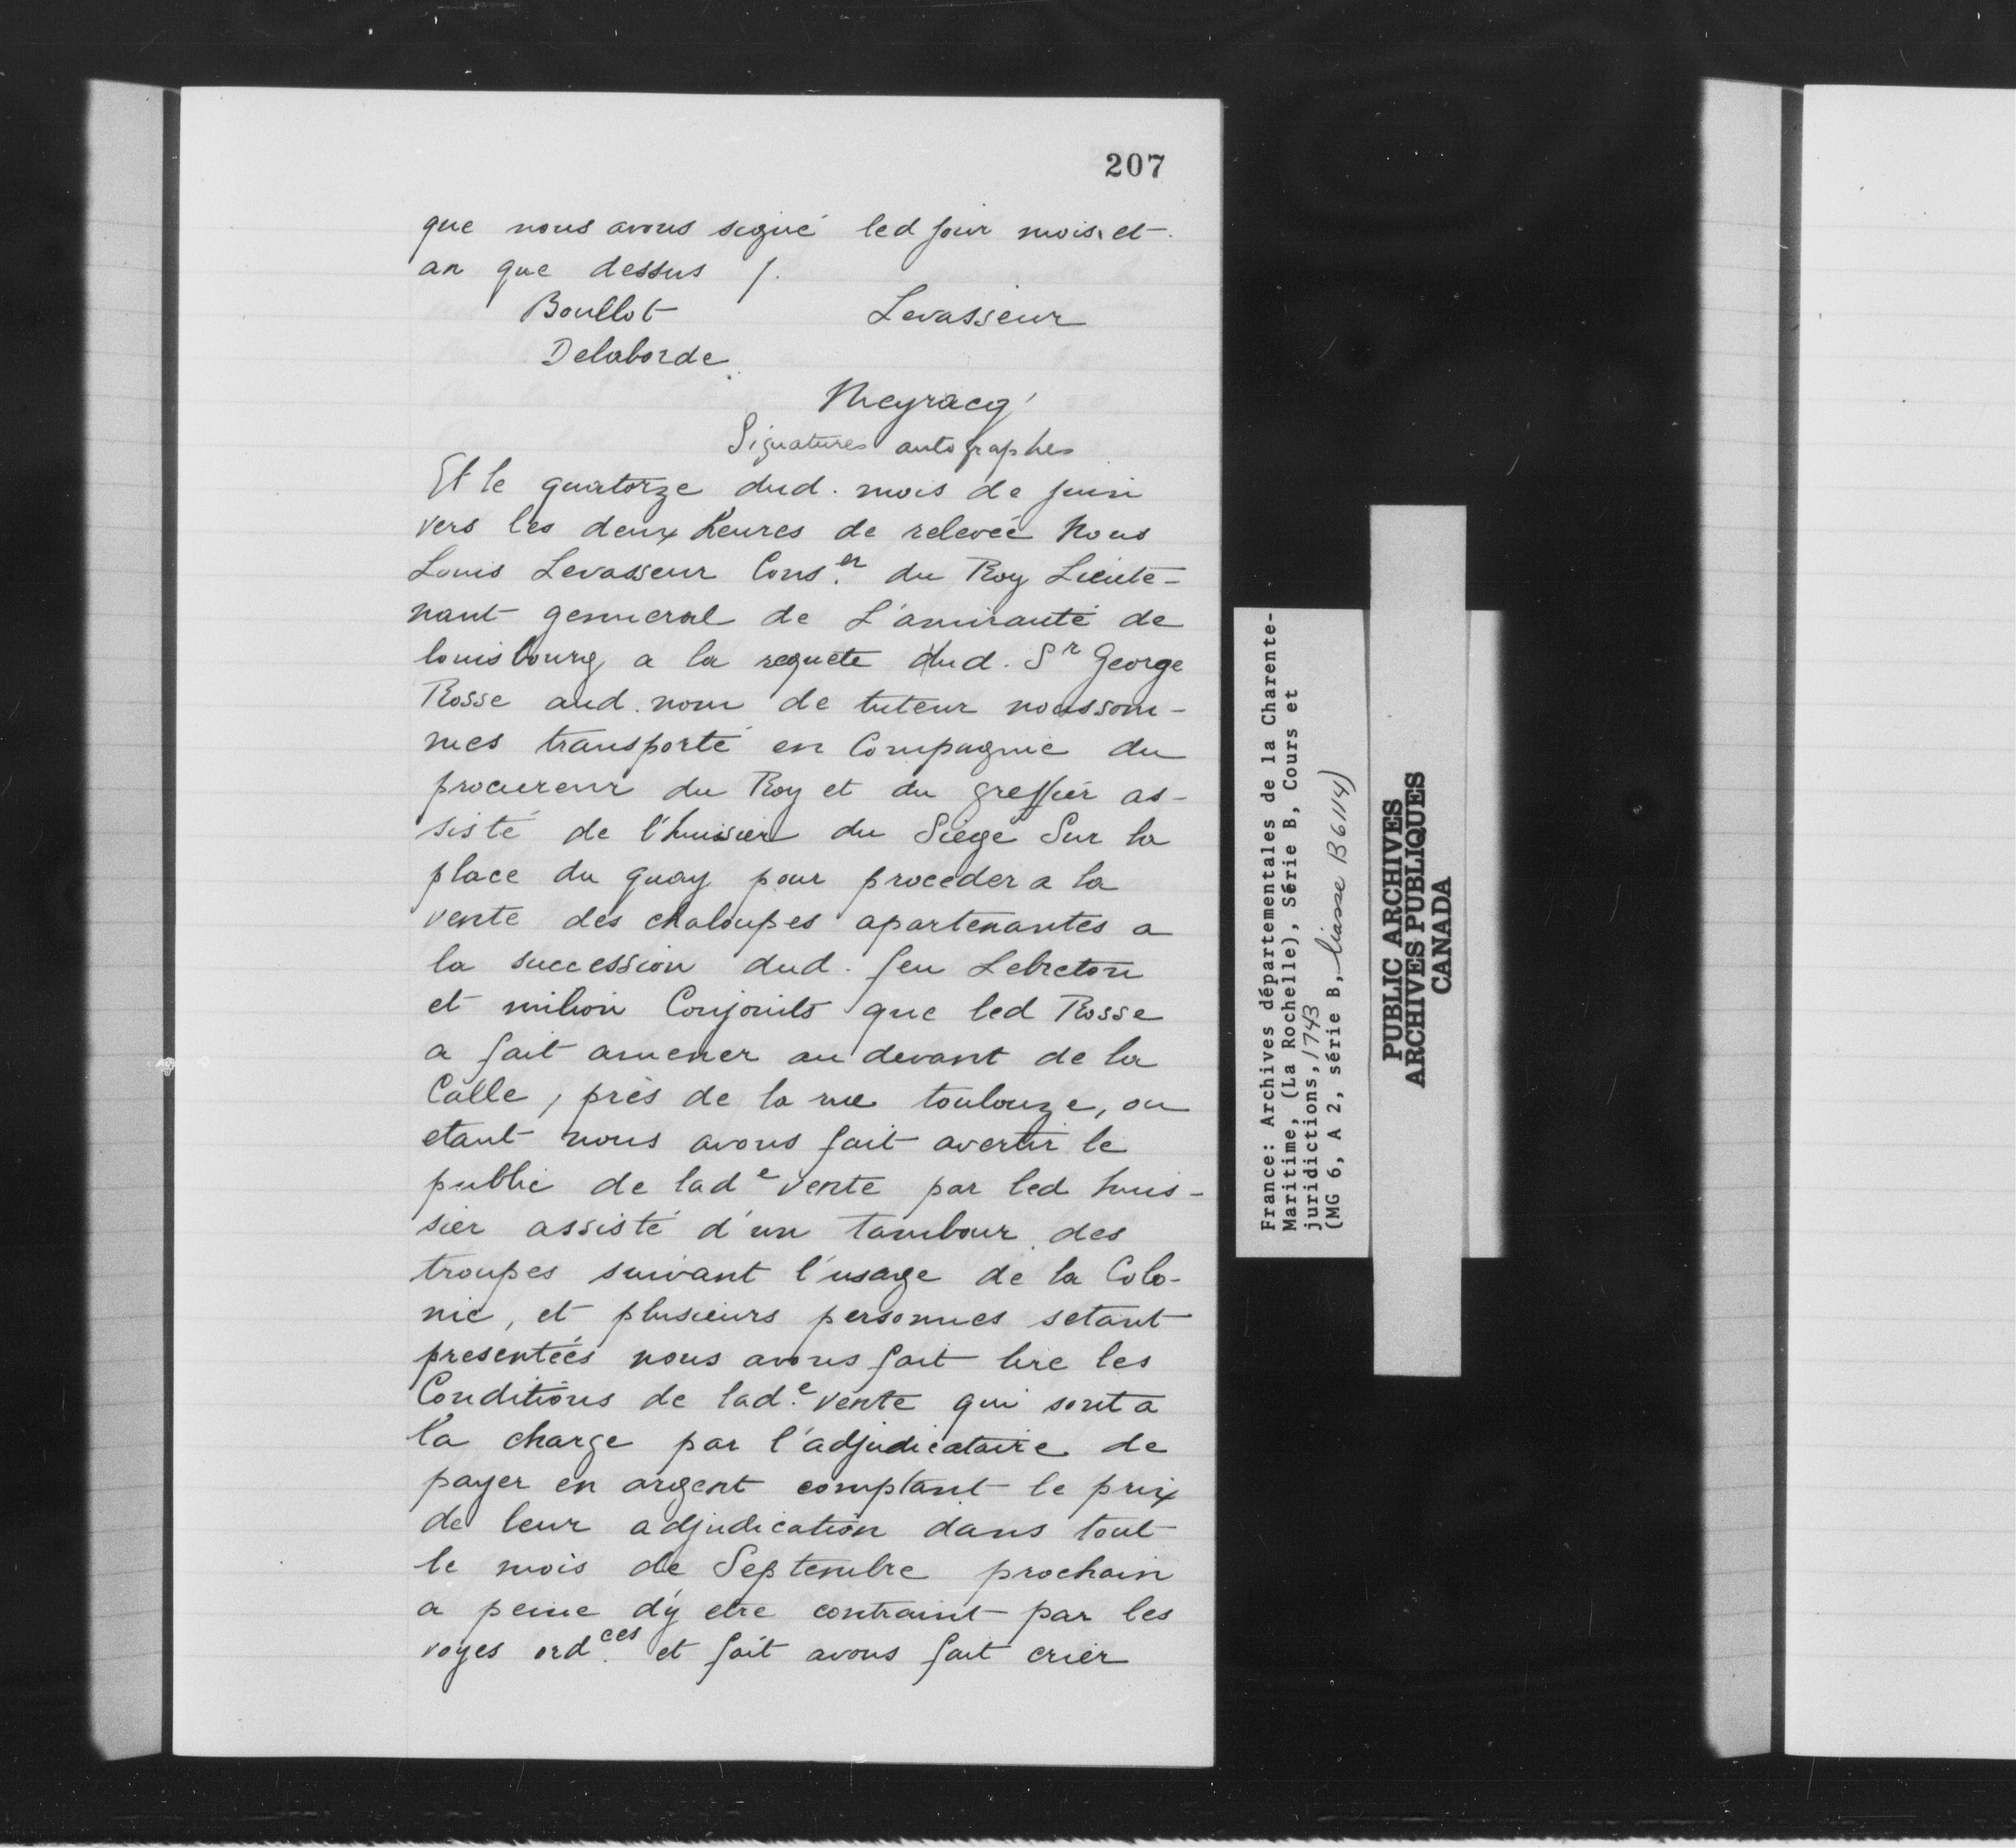 207
que nous avons signé led jour mois et
an que dessus /.
Boullot Levasseur
Delaborde
Meyracq
Signatures autographes
Et le quatorze dud. mois de juin
vers les deux heures de relevée Nous
Louis Levasseur Cons.er du Roy Lieute-
nant genneral de L'amirauté de
louisbourg a la requete dud. Sr George
Rosse aud. nom de tuteur noussom-
mes transporté en Compagnie du
procureur du Roy et du greffier as-
sisté de l'huissier du Siège Sur la
place du quay pour proceder a la
vente des chaloupes apartenantes a
la succession dud. feu Lebreton
et milion Conjoints que led Rosse
a fait amener au devant de la
Calle, près de la rue toulouze, ou
etant nous avons fait avertir le
public de lade vente par led huis-
sier assisté d'un tambour des
troupes suivant l'usage de la Colo-
nie, et plusieurs personnes setant
presentées nous avons fait lire les
Conditions de lad.e vente qui sont a
la charge par l'adjudicataire de
payer en argent comptant le prix
de leur adjudication dans tout
le mois de Septembre prochain
a peine d'y etre contraint par les
voyes ord.ces et fait avons fait crier
France: Archives départementales de la Charente-
Maritime, (La Rochelle), Série B, Cours et
juridictions, 1743
(MG 6, A 2, série B, liasse B6114)
PUBLIC ARCHIVES
ARCHIVES PUBLIQUES
CANADA